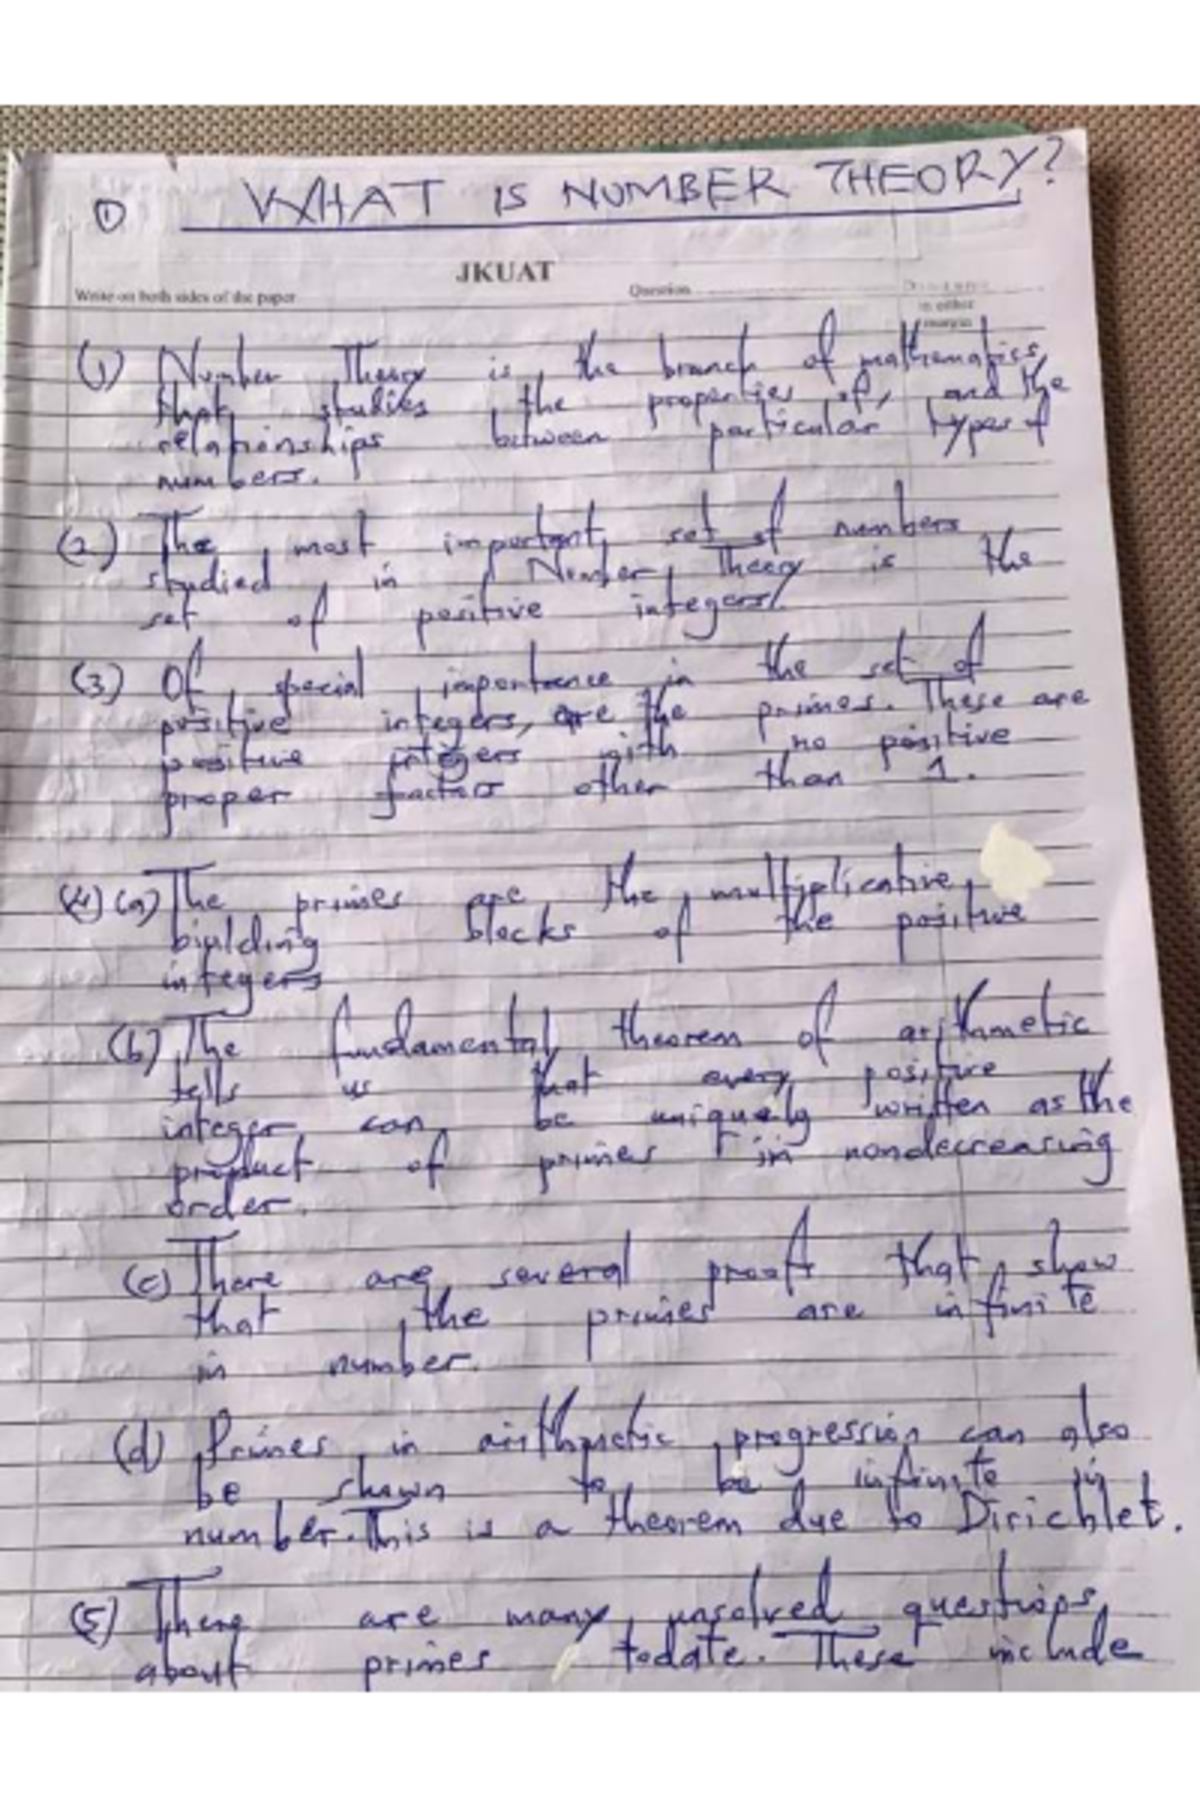 ① WHAT IS NUMBER THEORY?
JKUAT
Write on both sides of the paper Question
in either
margin
(1) Number Theory is the branch of mathematics
that studies the properties of, and the
relationships between particular types of
numbers.
(2) The most important set of numbers
studied in Number Theory is the
set of positive integers.
(3) Of special importance in the set of
positive integers, are the primes. These are
positive integers with no positive
proper factors other than 1.
(4) (a) The primes are the multiplicative
biulding blocks of the positive
integers
(b) The fundamental theorem of arithmetic
tells us that every positive
integer can be uniquely written as the
product of primes in nondecreasing
order.
(c) There are several proofs that show
that the primes are infinite
in number.
(d) Primes in arithmetic progression can also
be shown to be infinite in
number. This is a theorem due to Dirichlet.
(5) There are many unsolved questions
about primes todate. These include